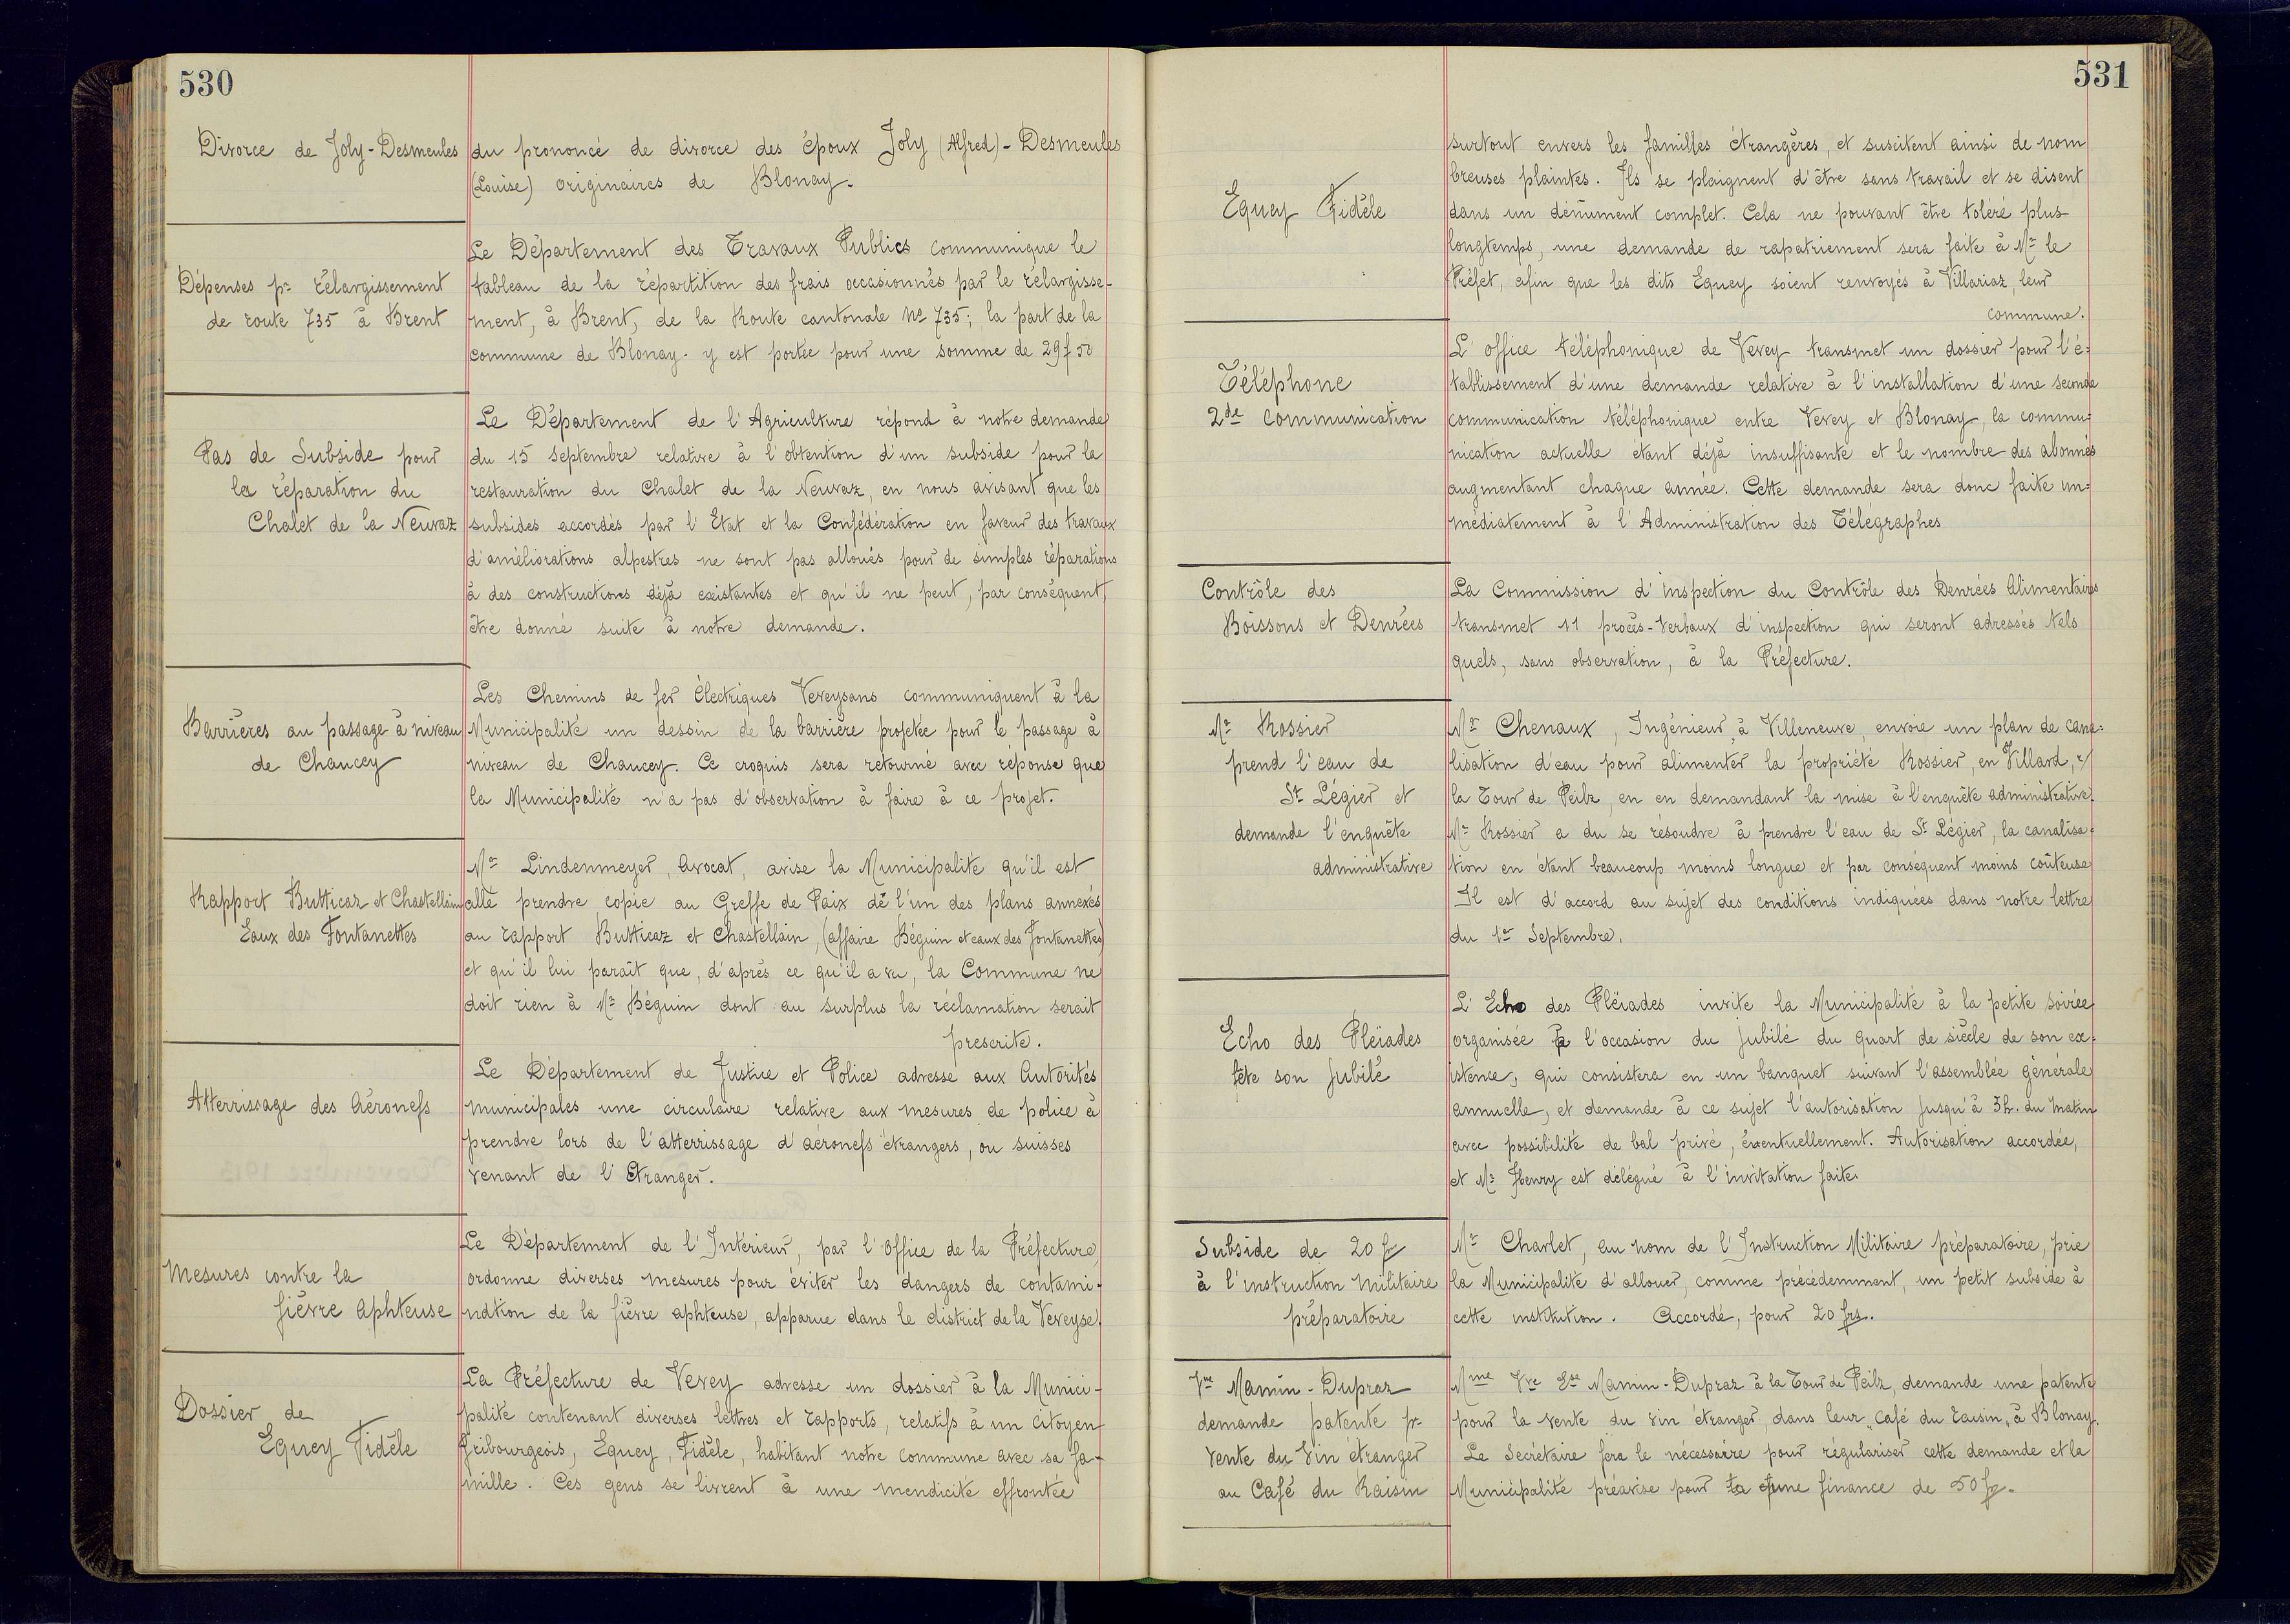 530
Divorce de Joly-Desmeules
du prononcé de divorce des époux Joly (Alfred) - Desmeules
(Louise) originaires de Blonay.
Dépenses pr rélargissement
de route 735 à Brent
Le Département des Travaux Publics communique le
tableau de la répartition des frais occasionnés par le rélargisse-
ment, à Brent, de la Route cantonale No 735; la part de la
commune de Blonay. y est portée pour une somme de 29f 50
Pas de Subside pour
la réparation du
Chalet de la Neuvaz
Le Département de l'Agriculture répond à notre demande
du 15 Septembre relative à l'obtention d'un subside pour la
restauration du Chalet de la Neuvaz, en nous avisant que les
subsides accordés par l'Etat et la Confédération en faveur des travaux
d'améliorations alpestres ne sont pas alloués pour de simples réparations
à des constructions déjà existantes et qu'il ne peut, par conséquent,
être donné suite à notre demande.
Barrières au passage à niveau
de Chaucey
Les Chemins de fer Électriques Veveysans communiquent à la
Municipalité un dessin de la barrière projetée pour le passage à
niveau de Chaucey. Ce croquis sera retourné avec réponse que
la Municipalité n'a pas d'observation à faire à ce projet.
Rapport Butticaz et Chastellain
Eaux des Fontanettes
Mr Lindenmeyer, Avocat, avise la Municipalité qu'il est
allé prendre copie au Greffe de Paix de l'un des plans annexés
au rapport Butticaz et Chastellain, (affaire Béguin et eaux des Fontanettes)
et qu'il lui paraît que, d'après ce qu'il a vu, la Commune ne
doit rien à Mr Béguin dont au surplus la réclamation serait
prescrite.
Atterrissage des Aéronefs
Le Département de Justice et Police adresse aux Autorités
municipales une circulaire relative aux mesures de police à
prendre lors de l'atterrissage d'aéronefs étrangers, ou suisses
venant de l'Etranger.
Mesures contre la
fièvre Aphteuse
Le Département de l'Intérieur, par l'office de la Préfecture,
ordonne diverses mesures pour éviter les dangers de contami-
nation de la fièvre aphteuse, apparue dans le district de la Veveyse.
Dossier de
Equey Fidèle
La Préfecture de Vevey adresse un dossier à la Munici-
palité contenant diverses lettres et rapports, relatifs à un citoyen
fribourgeois, Equey, Fidèle, habitant notre commune avec sa fa-
mille. Ces gens se livrent à une mendicité effrontée
531
Equey Fidèle
surtout envers les familles étrangères, et suscitent ainsi de nom
breuses plaintes. Ils se plaignent d'être sans travail et se disent
dans un dénument complet. Cela ne pouvant être toléré plus
longtemps, une demande de rapatriement sera faite à Mr le
Préfet, afin que les dits Equey soient renvoyés à Villariaz, leur
commune.
Téléphone
2de communication
L'office téléphonique de Vevey transmet un dossier pour l'é-
tablissement d'une demande relative à l'installation d'une seconde
communication téléphonique entre Vevey et Blonay, la commu-
nication actuelle étant déjà insuffisante et le nombre des abonnés
augmentant chaque année. Cette demande sera donc faite im-
médiatement à l'Administration des Télégraphes
Contrôle des
Boissons et Denrées
La Commission d'inspection du Contrôle des Denrées Alimentaires
transmet 11 procès-verbaux d'inspection qui seront adressés tels
quels, sans observation, à la Préfecture.
Mr Rossier
prend l'eau de
St Légier et
demande l'enquête
administrative
Mr Chenaux, Ingénieur, à Villeneuve, envoie un plan de cana-
lisation d'eau pour alimenter la propriété Rossier, en Villard, s/
la Tour de Peilz, en en demandant la mise à l'enquête administrative.
Mr Rossier a du se résoudre à prendre l'eau de St Légier, la canalisa-
tion en étant beaucoup moins longue et par conséquent moins coûteuse
Il est d'accord au sujet des conditions indiquées dans notre lettre
du 1er Septembre.
Echo des Pléïades
fête son Jubilé
L'Echo des Pléïades invite la Municipalité à la petite soirée
organisée à l'occasion du Jubilé du quart de siècle de son ex-
istence, qui consistera en un banquet suivant l'assemblée générale
annuelle, et demande à ce sujet l'autorisation jusqu'à 3h. du matin
avec possibilité de bal privé, éventuellement. Autorisation accordée,
et Mr Henry est délégué à l'invitation faite.
Subside de 20 frs
à l'instruction Militaire
préparatoire
Mr Charlet, au nom de l'Instruction Militaire préparatoire, prie
la Municipalité d'allouer, comme précédemment, un petit subside à
cette institution. Accordé, pour 20 frs.
Vve Mamin-Dupraz
demande patente pr
vente du Vin étranger
au Café du Raisin
Mme Vve Ese Mamin-Dupraz à la Tour de Peilz, demande une patente
pour la vente du vin étranger, dans leur "Café du raisin" à Blonay.
Le Secrétaire fera le nécessaire pour régulariser cette demande et la
Municipalité préavise pour une finance de 50 frs.